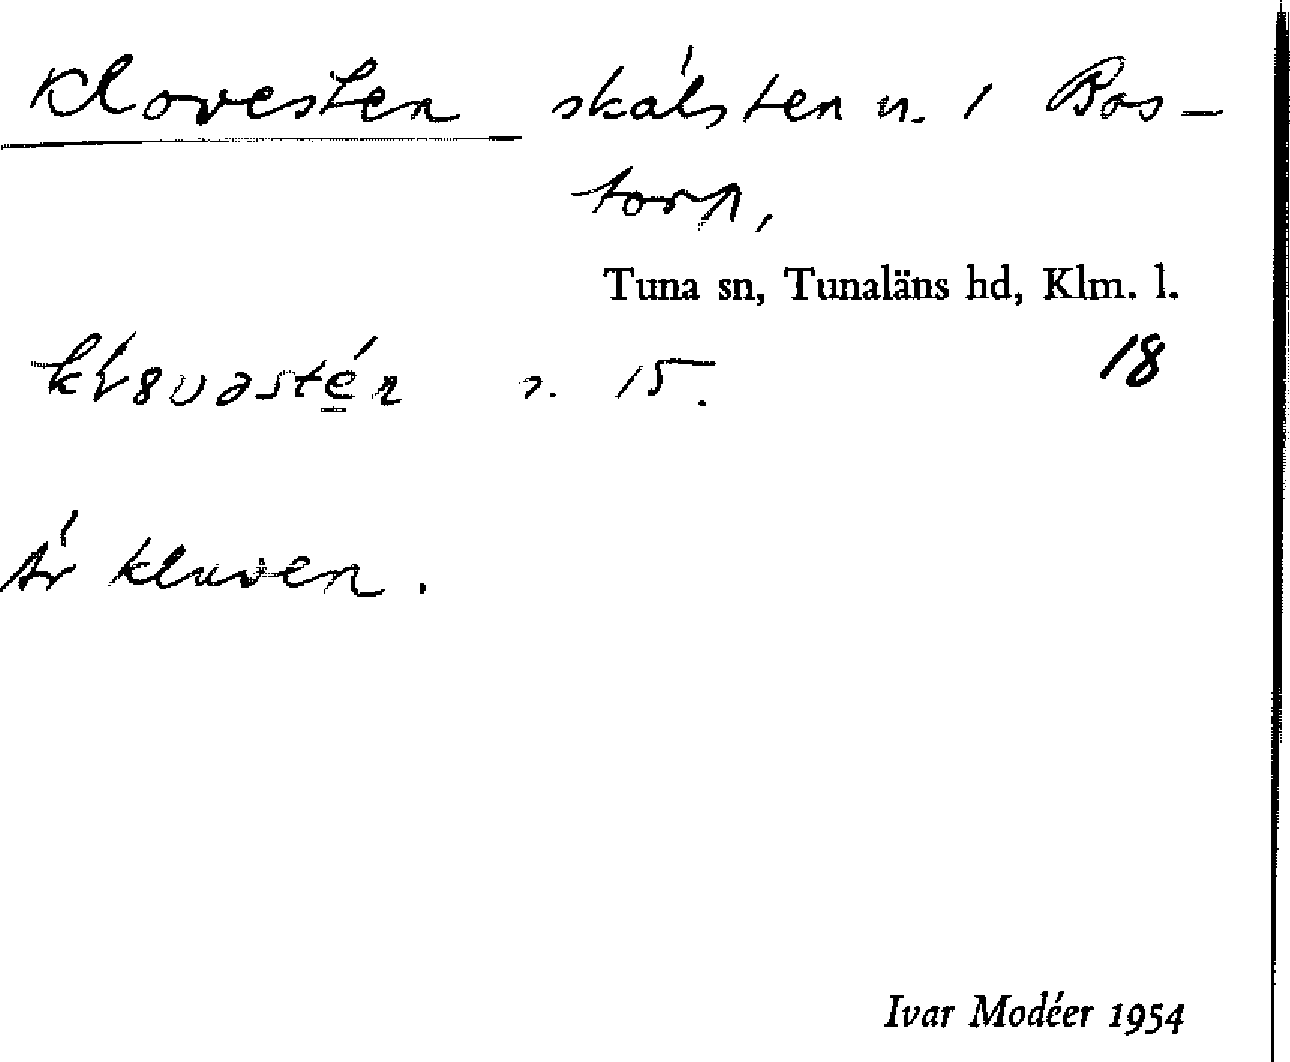 Klovesten skålsten n. 1 Bos-
torp,
Tuna sn, Tunaläns hd, Klm. l.
15.
18
Är kluven.
Ivar Modéer 1954